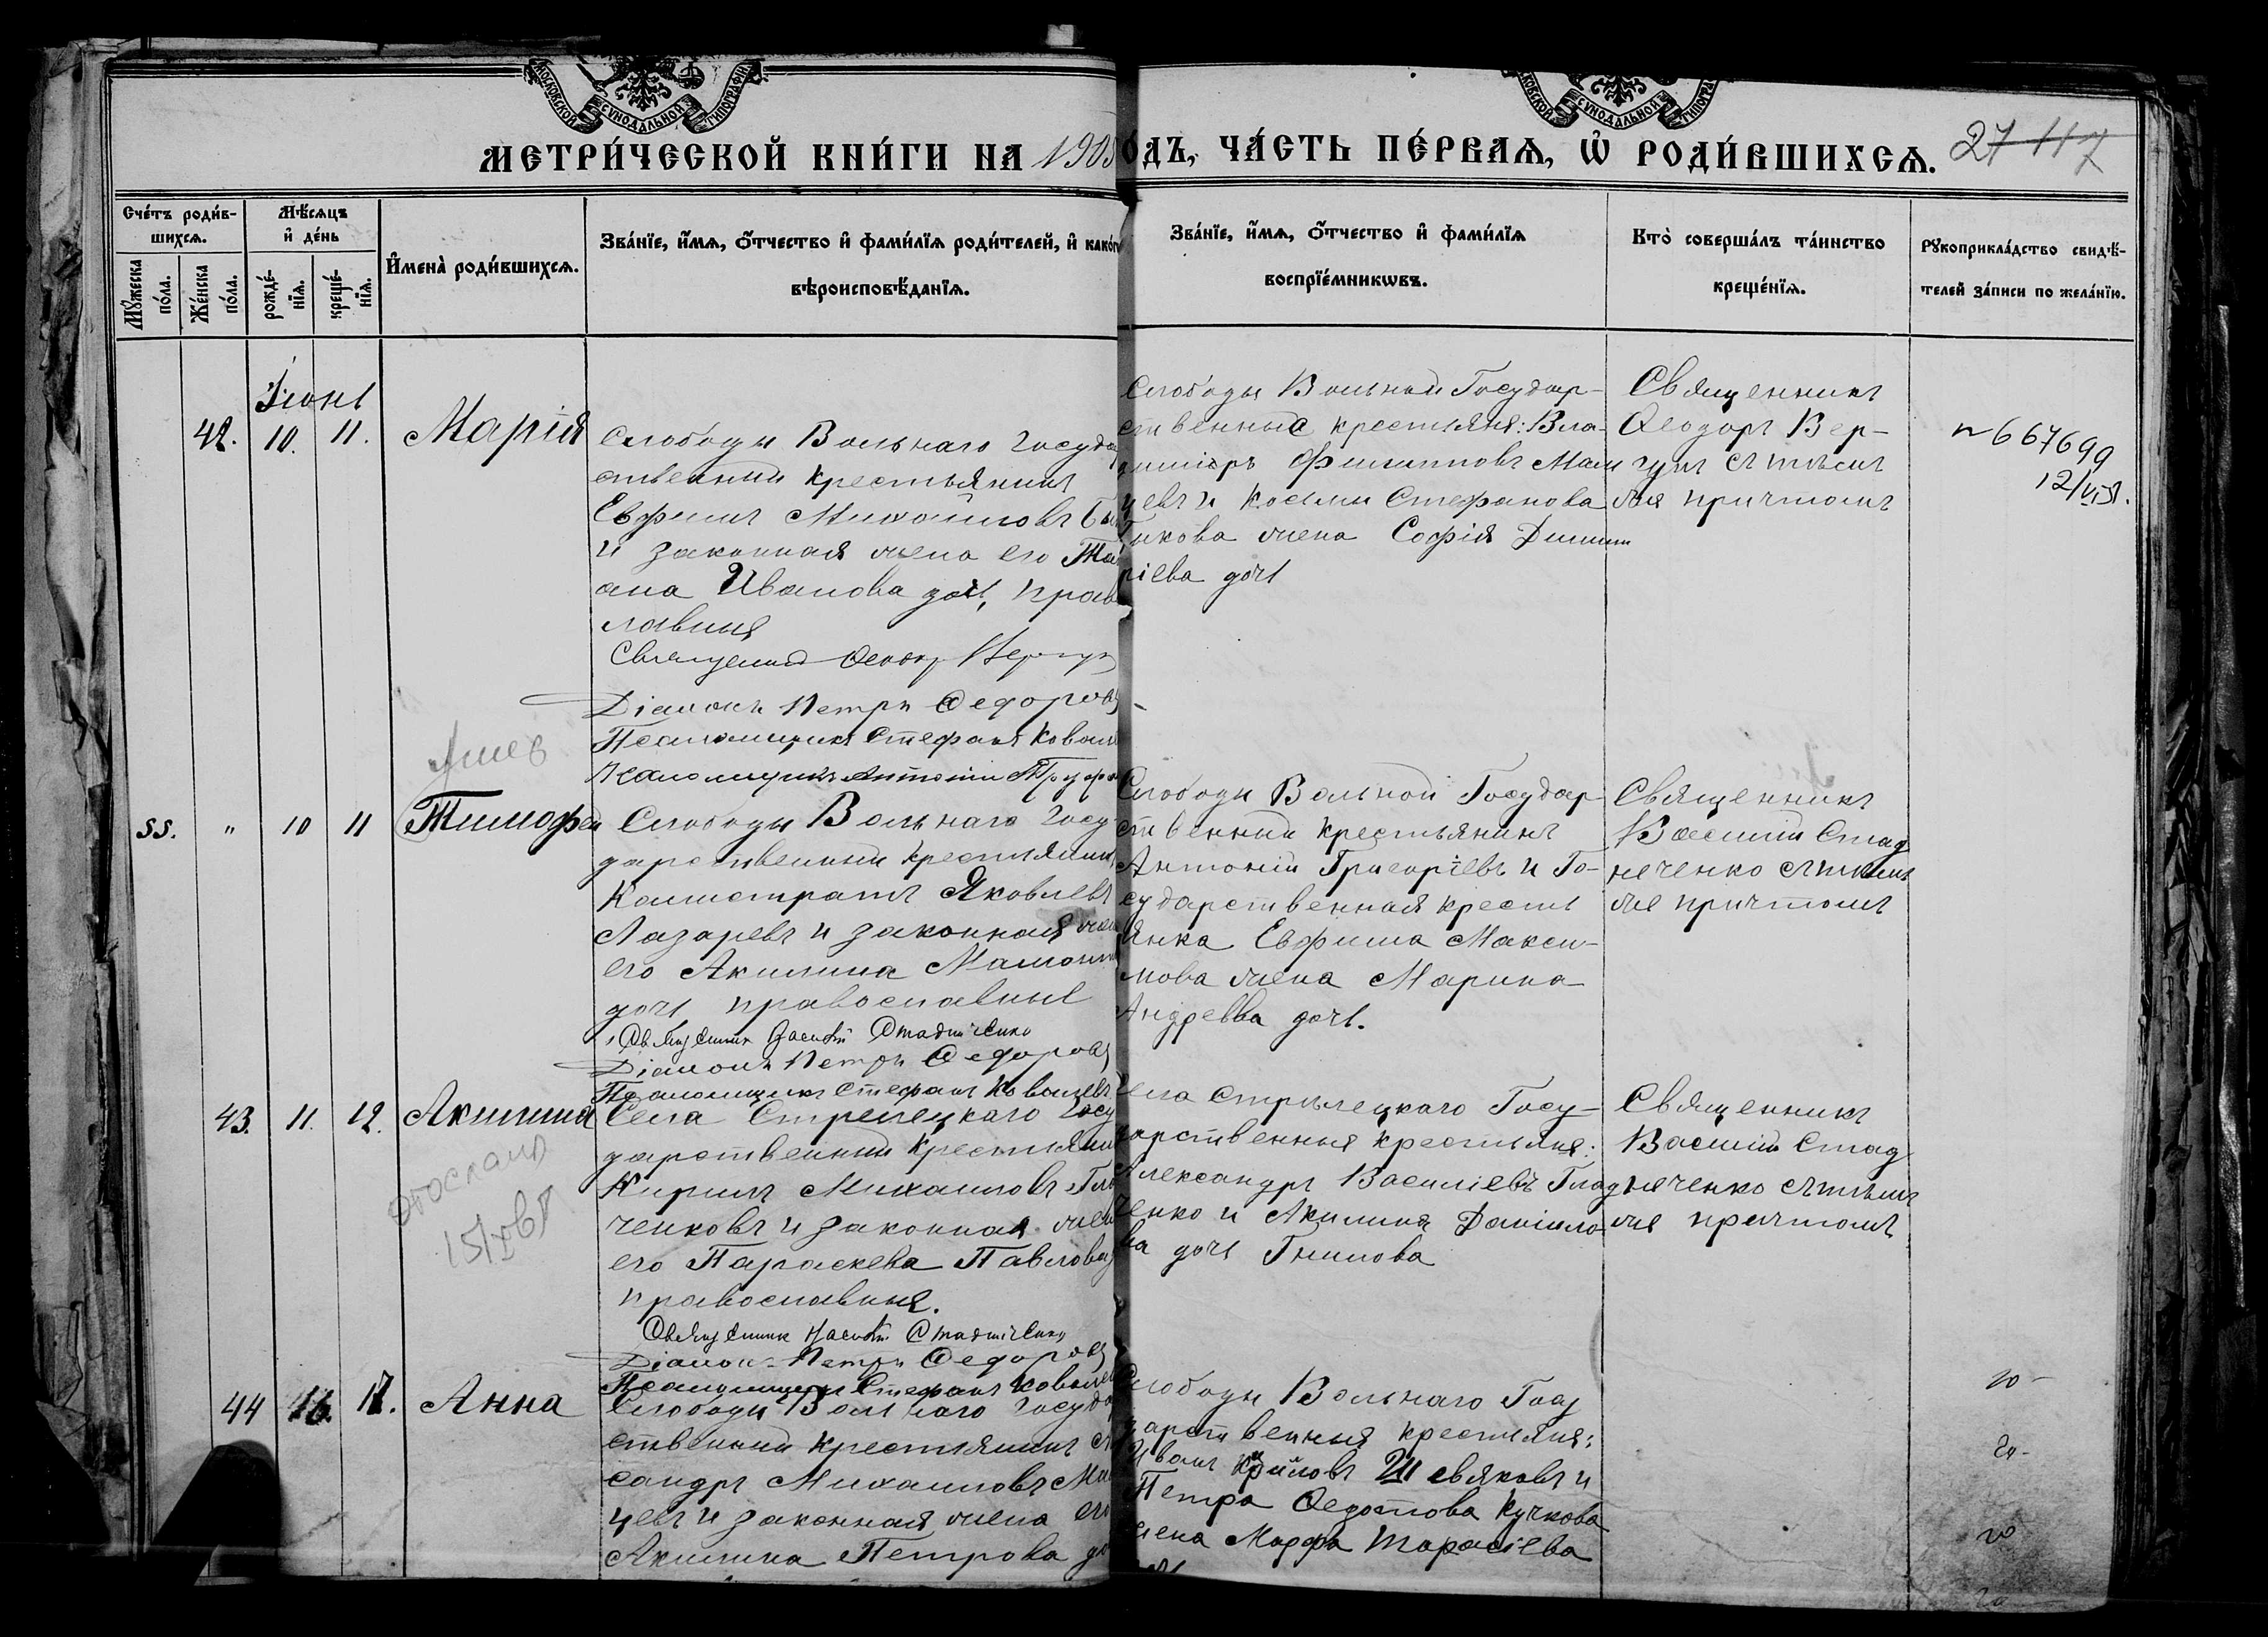 МОСКОВСКОЙ СУНОДАЛЬНОЙ ТИПОГРАФІИ
МОСКОВСКОЙ СУНОДАЛЬНОЙ ТИПОГРА
МЕТРИ́ЧЕСКОЙ КНИ́ГИ НА 1905
ОДЪ, ЧА́СТЬ ПЕ́РВАѦ, Ѡ҆ РОДИ́ВШИХСѦ.
27 117
Сче́тъ роди́в-
шихсѧ.
Мꙋ́жеска
по́ла.
Же́нска
по́ла.
Мѣ́сѧцъ
и҆ де́нь
рожде́-
нїѧ.
креще́-
нїѧ.
И҆мена̀ роди́вшихсѧ.
Зва́нїе, и҆́мѧ, ѻ҆́тчество и҆ фами́лїѧ роди́телей, и҆ како́г
вѣроисповѣ́данїѧ.
Зва́нїе, и҆́мѧ, ѻ҆́тчество и҆ фами́лїѧ
воспрїе́мникѡвъ.
Кто̀ соверша́лъ та́инство
креще́нїѧ.
Рꙋкоприкла́дство свидѣ́-
телей за́писи по жела́нїю.
Іюнь
42. 10. 11. Марія
Слободы Вольнаго Государ
ственный крестьянинъ
Евфимъ Михайловъ
и законная жена его Тать
ана Иванова дочь, прав
лавныя
Священникъ Ѳеодоръ Вергунъ
Діаконъ Петръ Ѳедоровъ
Псаломщикъ Стефанъ Ковале
Псаломщикъ Антоній
Слободы Вольной Государ-
ственные крестьяне: Вла-
димиръ Филипповъ Маш
цевъ и Косьмы Стефанова
жена Софія Димит
ріева дочь
Священникъ
Ѳеодоръ Вер-
гунъ съ тѣмъ
же причтомъ
№ 667699
12/VI 51.
55. " 10 11 Тимофей
Слободы Вольнаго Госу-
дарственный крестьянинъ
Калистратъ Яковлевъ
Лазаревъ и законная жен
его Акилина
дочь православные
Священникъ Василій Стадниченко
Діаконъ Петръ Ѳедоровъ
Псаломщикъ Стефанъ Ковалевъ
Слободы Вольной Государ-
ственный крестьянинъ
Антоній Григоріевъ и Го-
сударственная кресть
янка Евфима Макси-
мова жена Марина
Андреева дочь.
Священникъ
Василій Стад
ниченко съ тѣмъ
же причтомъ
43. 11. 12. Акилина
отослано
Села Стрелецкаго Госу
дарственный крестьянин
Кирилъ Михаиловъ Гла
ченковъ и законная жен
его Параскева Павлова
православныя.
Священникъ Василій Стадниченко
Діаконъ Петръ Ѳедоровъ
Псаломщикъ Стефанъ Ковалев
Села Стрѣлецкаго Госу-
дарственныя крестьяня:
Александръ Василіевъ Глад
ченко и Акилина Даніило-
ва дочь Гнилова
Священникъ
Василій Стад
ниченко съ тѣмъ
же причтомъ
44 16. 17. Анна
Слободы Вольнаго Государ
ственный крестьянинъ
сандръ Михаиловъ
цевъ и законная жена его
Акилина Петрова до
Слободы Вольнаго Госу
дарственныя крестьяня:
Иванъ Шевяковъ и
Петра Ѳедотова Кучкова
жена Марфа Тарасіева